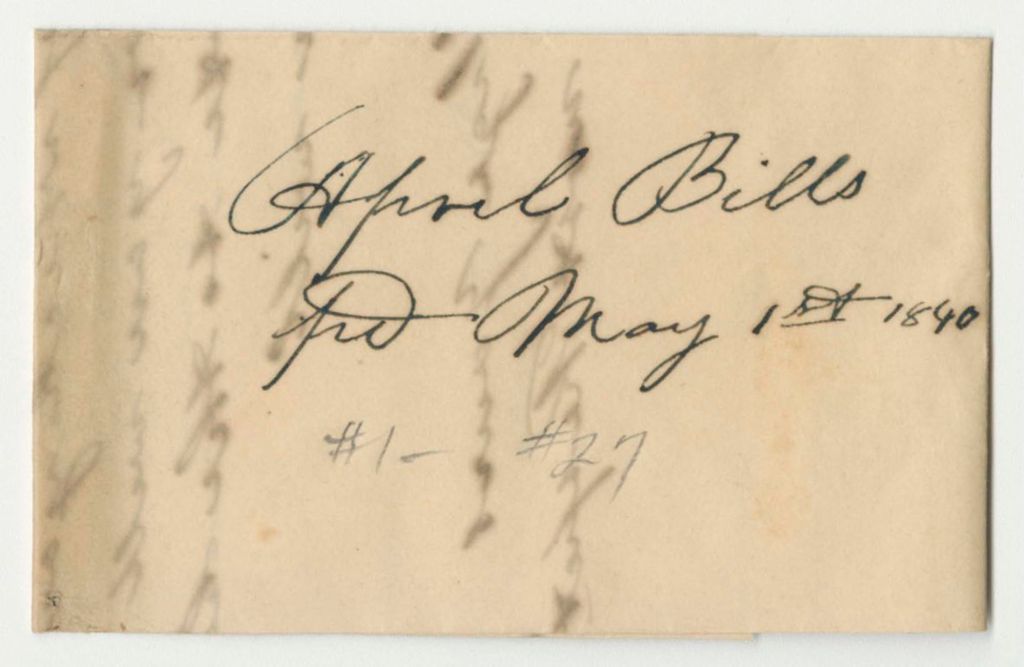 April Bills
pd May 1st 1840
#1- #27